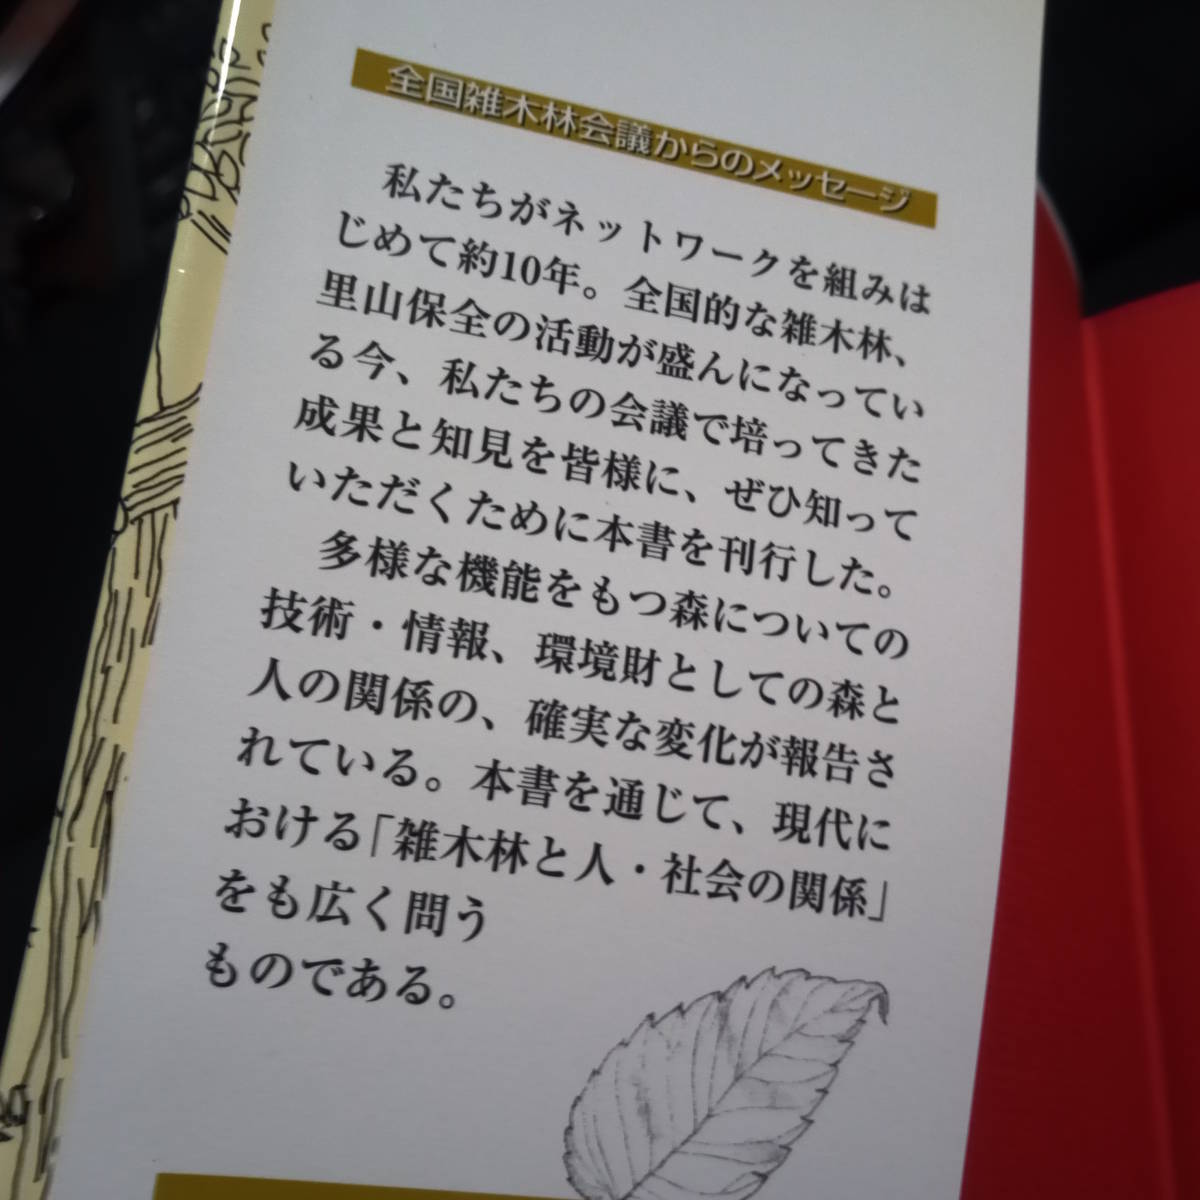 全国雑木林会議からのメッセージ
私たちがネットワークを組みは
じめて約10年。全国的な雑木林、
里山保全の活動が盛んになってい
る今、私たちの会議で培ってきた
成果と知見を皆様に、ぜひ知って
いただくために本書を刊行した。
多様な機能をもつ森についての
技術・情報、環境財としての森と
人の関係の、確実な変化が報告さ
れている。本書を通じて、現代に
おける「雑木林と人・社会の関係」
をも広く問う
ものである。